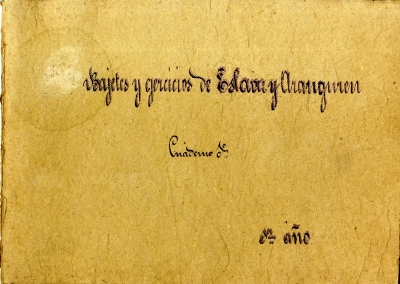 Bajetes y gercicios de Eslava y Aranguren
Cuaderno 3º
3er año